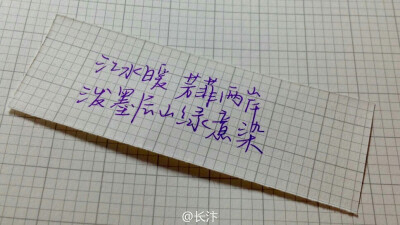 江水暖 芳菲两岸
泼墨层山绿意染
@长汴